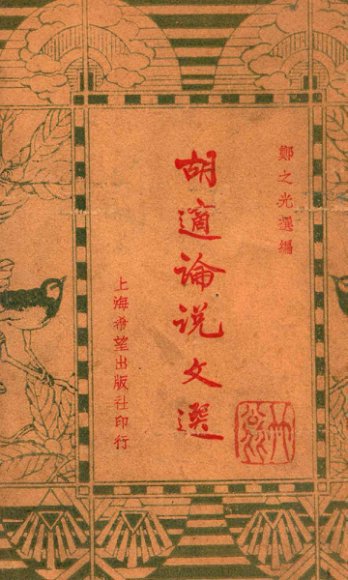 鄭之光選編
胡適論说文選
上海希望出版社印行